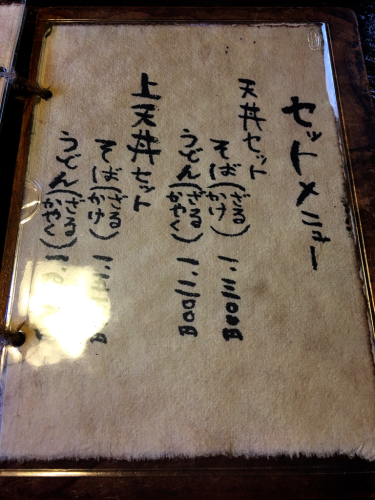 セットメニュー
天丼セット
そば(ざる かけ) 一、三〇〇円
うどん(ざる かやく) 一、三〇〇円
上天丼セット
そば(ざる かけ)
うどん(ざる かやく)